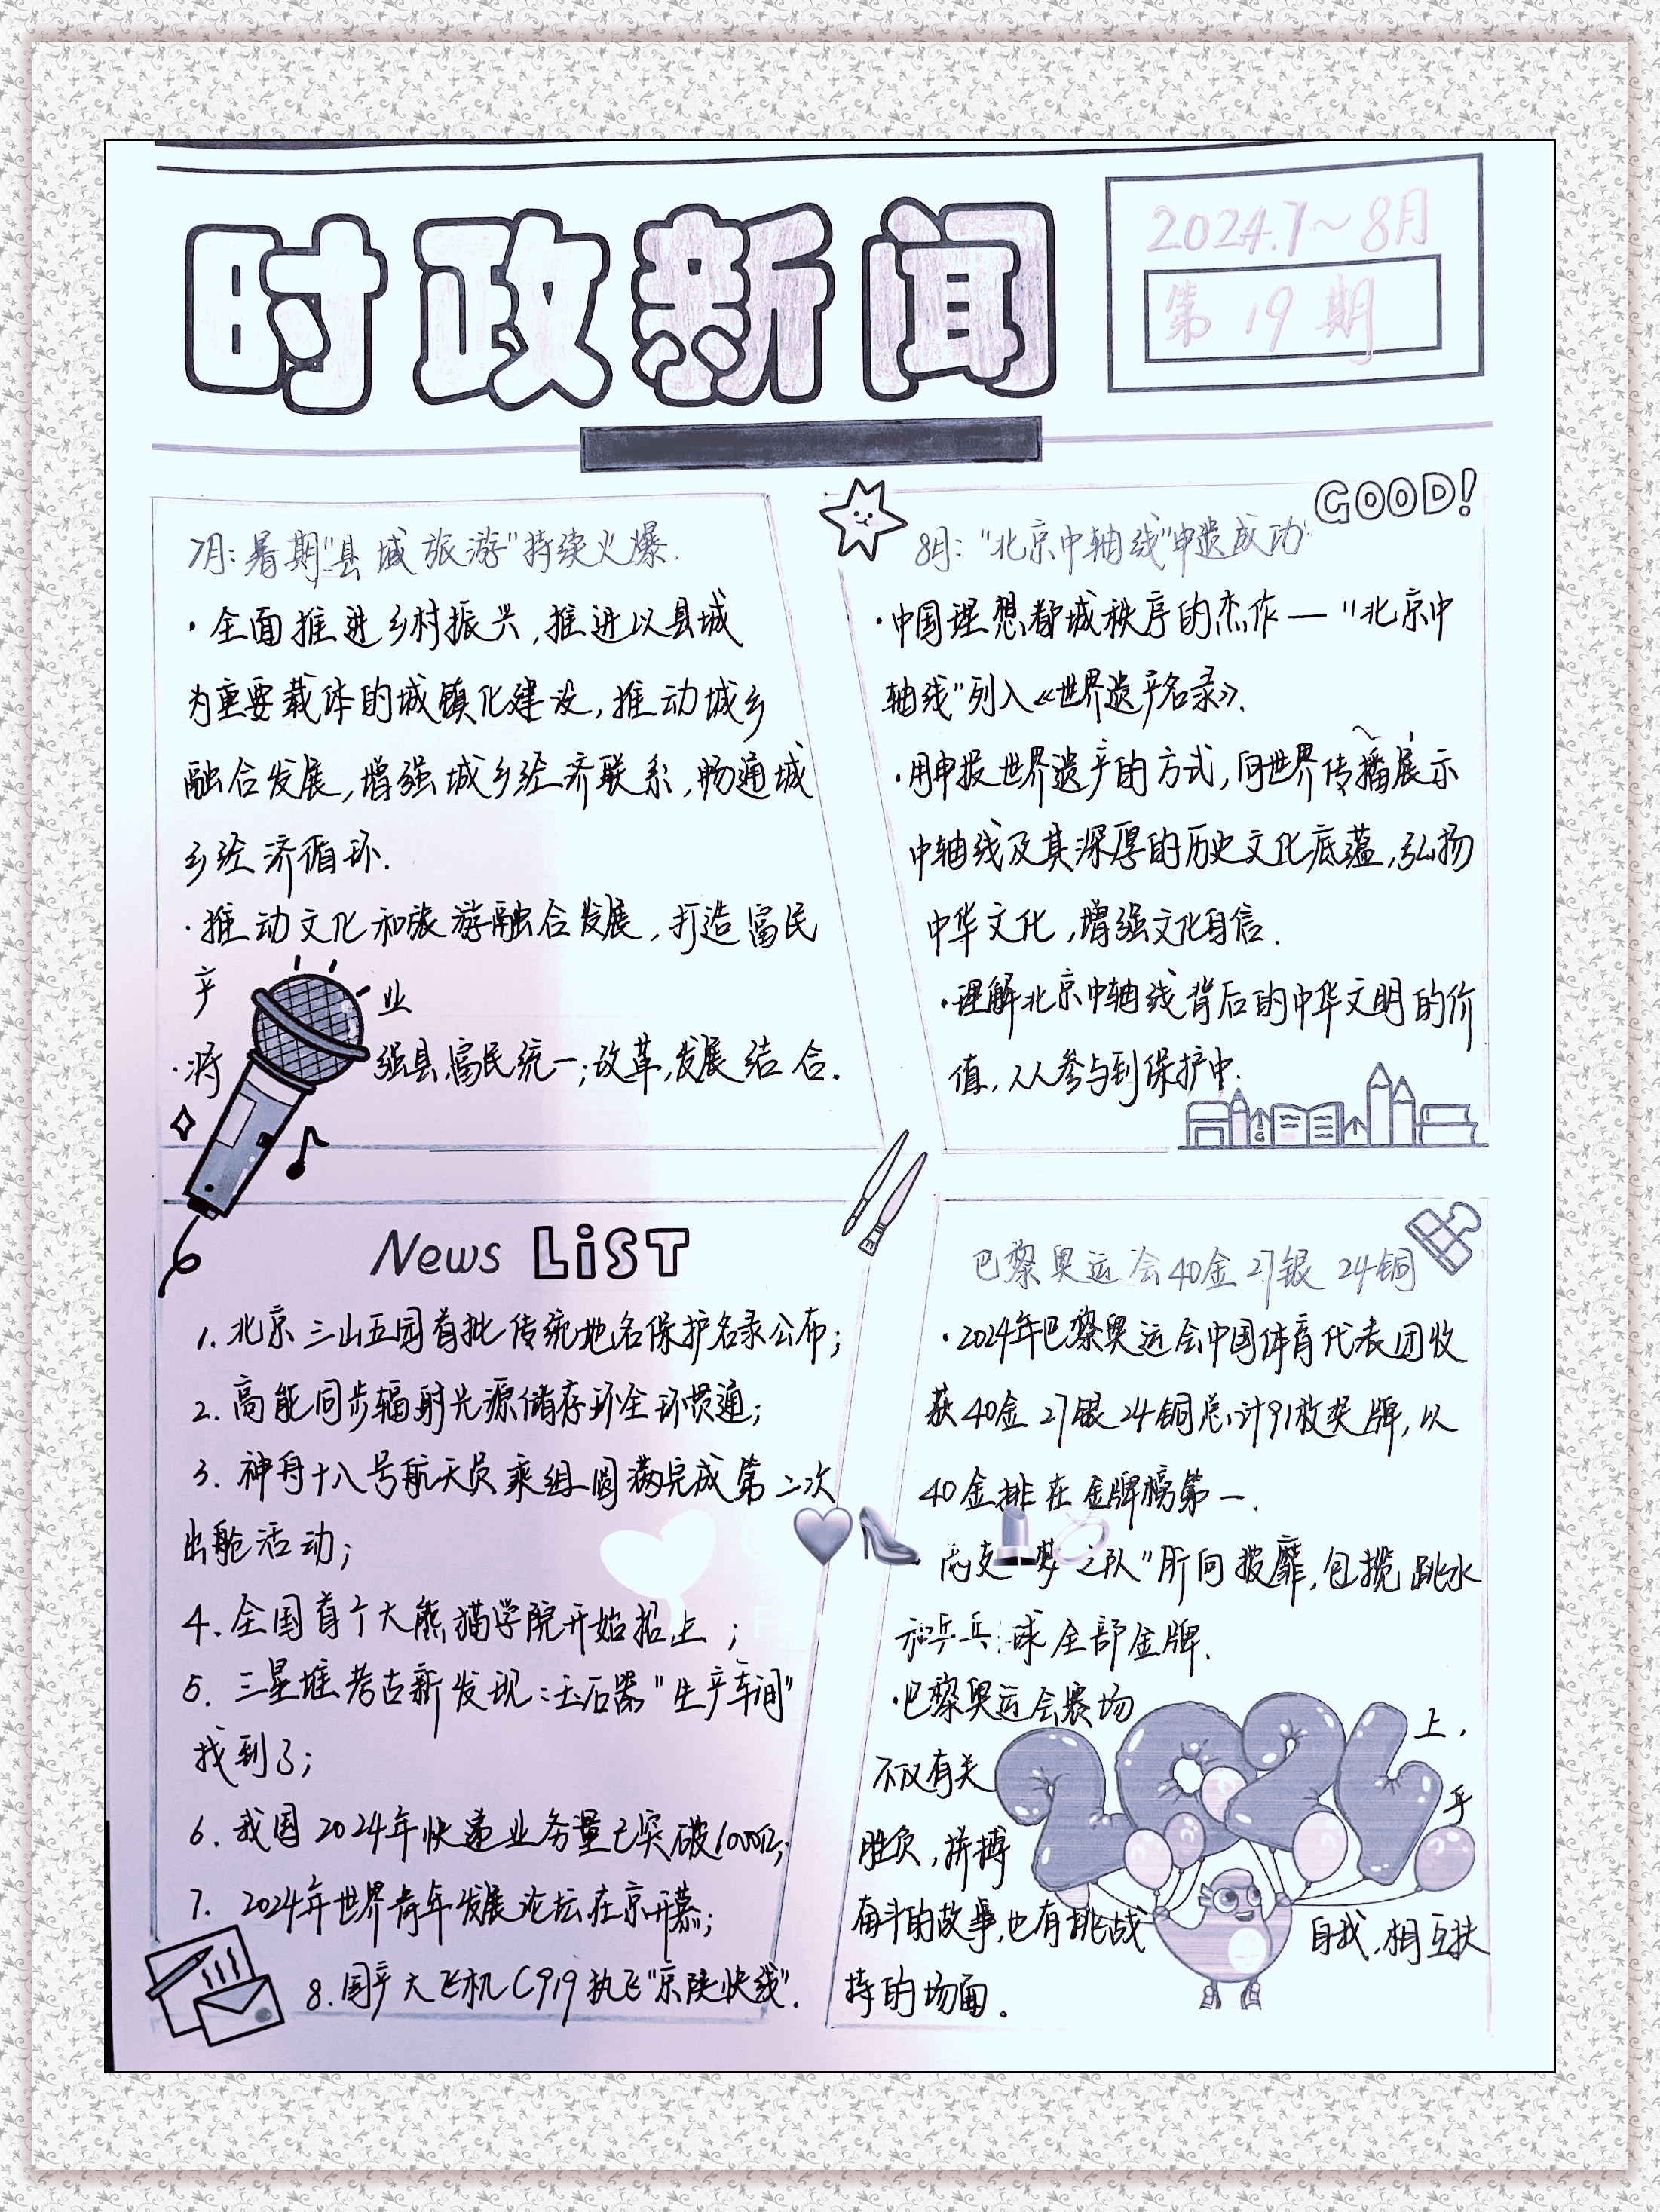 时政新闻
2024.7～8月
第19期
GOOD!
7月:暑期"县城旅游"持续火爆.
·全面推进乡村振兴,推进以县城
为重要载体的城镇化建设,推动城乡
融合发展,增强城乡经济联系,畅通城
乡经济循环.
·推动文化和旅游融合发展,打造富民
产业
·将强县,富民统一;改革,发展结合.
8月:"北京中轴线"申遗成功
·中国理想都城秩序的杰作—"北京中
轴线"列入《世界遗产名录》.
·用申报世界遗产的方式,向世界传播展示
中轴线及其深厚的历史文化底蕴,弘扬
中华文化,增强文化自信.
·理解北京中轴线背后的中华文明的价
值,人人参与到保护中.
News LiST
1.北京三山五园首批传统地名保护名录公布;
2.高能同步辐射光源储存环全环贯通;
3.神舟十八号航天员乘组圆满完成第二次
出舱活动;
4.全国首个大熊猫学院开始招上;
5.三星堆考古新发现:玉石器"生产车间"
找到了;
6.我国2024年快递业务量已突破1000亿;
7.2024年世界青年发展论坛在京开幕;
8.国产大飞机C919执飞"京陕快线".
巴黎奥运会40金27银24铜
·2024年巴黎奥运会中国体育代表团收
获40金27银24铜总计91枚奖牌,以
40金排在金牌榜第一.
·两支"梦之队"所向披靡,包揽跳水
和乒乓球全部金牌.
·巴黎奥运会赛场上,
不仅有关乎
胜负,拼搏
奋斗的故事,也有挑战自我,相互扶
持的场面。
2024